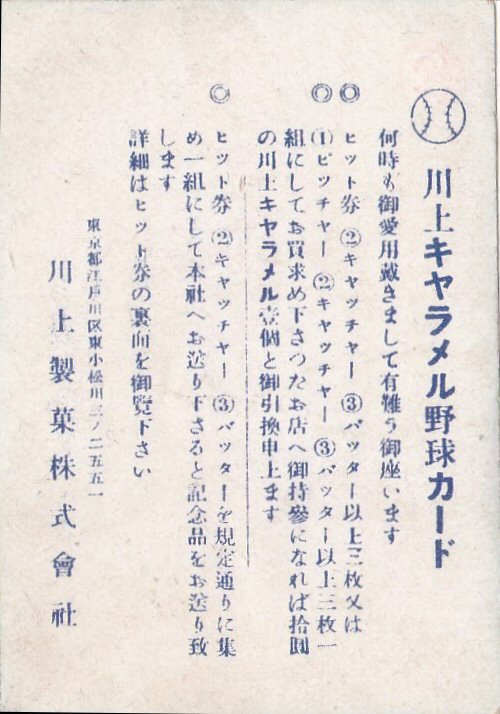 川上キャラメル野球カード
何時も御愛用戴きまして有難う御座います
◎ヒット券 (2)キャッチャー (3)バッター以上三枚又は
◎(1)ピッチャー (2)キャッチャー (3)バッター以上三枚一
組にしてお買求め下さつたお店へ御持參になれば拾圓
の川上キャラメル壹個と御引換申上ます
◎ヒット券 (2)キャッチャー (3)バッターを規定通りに集
め一組にして本社へお送り下さると記念品をお送り致
します
詳細はヒット券の裏面を御覽下さい
東京都江戸川区東小松川三ノ二五五一
川上製菓株式會社